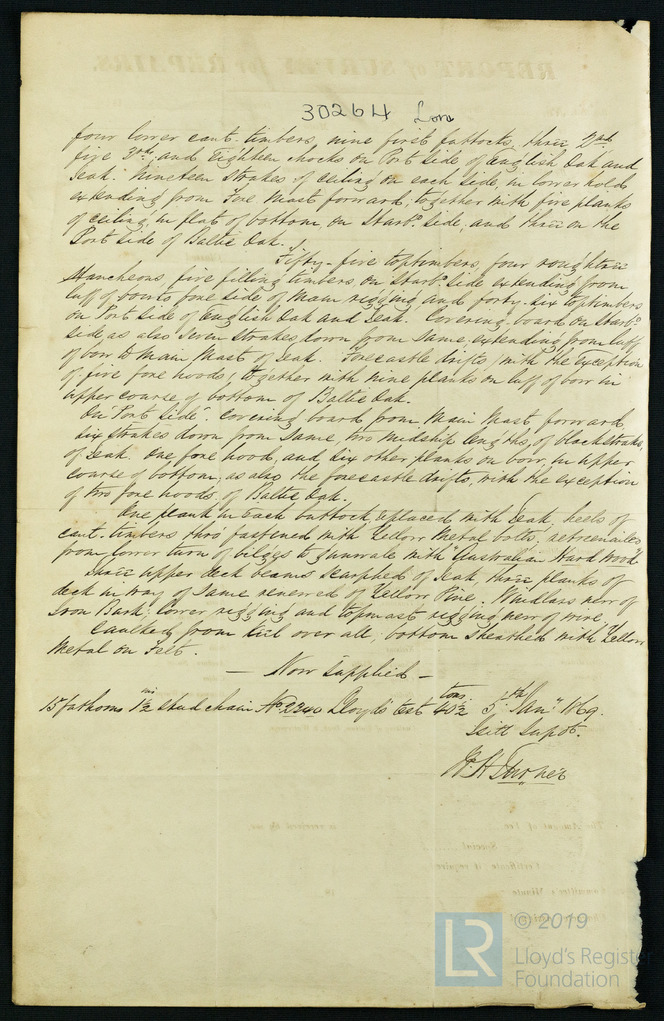 REPORT of SURVEY for REPAIRS.
30264 Lon
four lower cant timbers, nine first futtocks, three 2nd
five 3rd and Eighteen chocks on Port side of English Oak and
Teak. Nineteen Strakes of ceiling on each side, in lower hold
extending from Fore Mast forward, together with five planks
of ceiling in flat of bottom on Starbd. side, and three on the
Port side of Baltic Oak.
Fifty-five toptimbers, four roughtree
Stancheons, five filling timbers on Starbd. side extending from
luff of bow to fore side of Main rigging, and forty-six toptimbers
on Port side of English Oak and Teak. Covering board on Starbd.
side as also seven Strakes down from same, extending from luff
of bow to Main Mast of Teak. Forecastle drifts, with the exception
of five fore hoods, together with nine planks on luff of bow in
upper course of bottom of Baltic Oak.
On Port side. Covering board from Main Mast forward,
six strakes down from same, two midship lengths, of blackstrakes,
of Teak. One fore hood, and six other planks on bow, in upper
course of bottom, as also the forecastle drifts, with the exception
of two fore hoods, of Baltic Oak.
One plank in each buttock, replaced with Teak, heels of
cant timbers thro' fastened with Yellow Metal bolts, retreenailed
from lower turn of bilges to gunwale with "Australian Hard Wood"
Three upper deck beams scarphed of Teak, three planks of
deck in way of same renewed of Yellow Pine. Windlass new of
Iron Bark: lower rigging and topmast rigging new of wire.
Caulked from keel over all, bottom sheathed with Yellow
Metal on Felt.
— Now supplied —
15 fathoms 1½ in stud chain No 2240 Lloyd's test 40½ tons 5th Jany 1869.
Supdt.
The Amount of Fee
is received by me
Special
Certificate if required
Committee's Minute
18
© 2019
LR
Lloyd's Register
Foundation